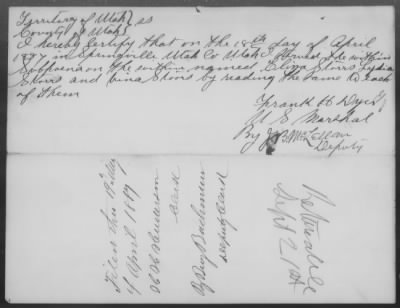 Territory of Utah } ss
County of Utah }
I hereby Certify that on the 18th day of April
1889 in Springville Utah Co Utah I Served the within
Subpoena on the within named Eliza Stores Lydia
Stores and Vina Stores by reading the Same to each
of them
Frank H Dyer
U S Marshal
By J B McLellan
Deputy
Filed this
of April 1889
H Henderson
Clerk
By Bachman
Deputy Clerk
Returnable
Sept 21st